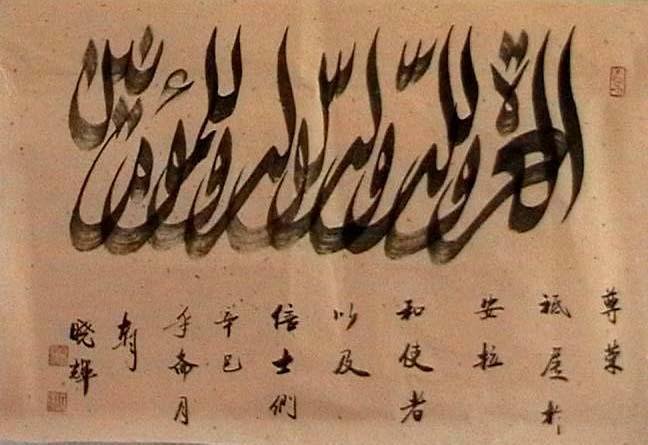 ولله العزة ولرسوله وللمؤمنين
尊荣
祗属於
安拉
和使者
以及
信士們
辛巳
年斋月
晓輝